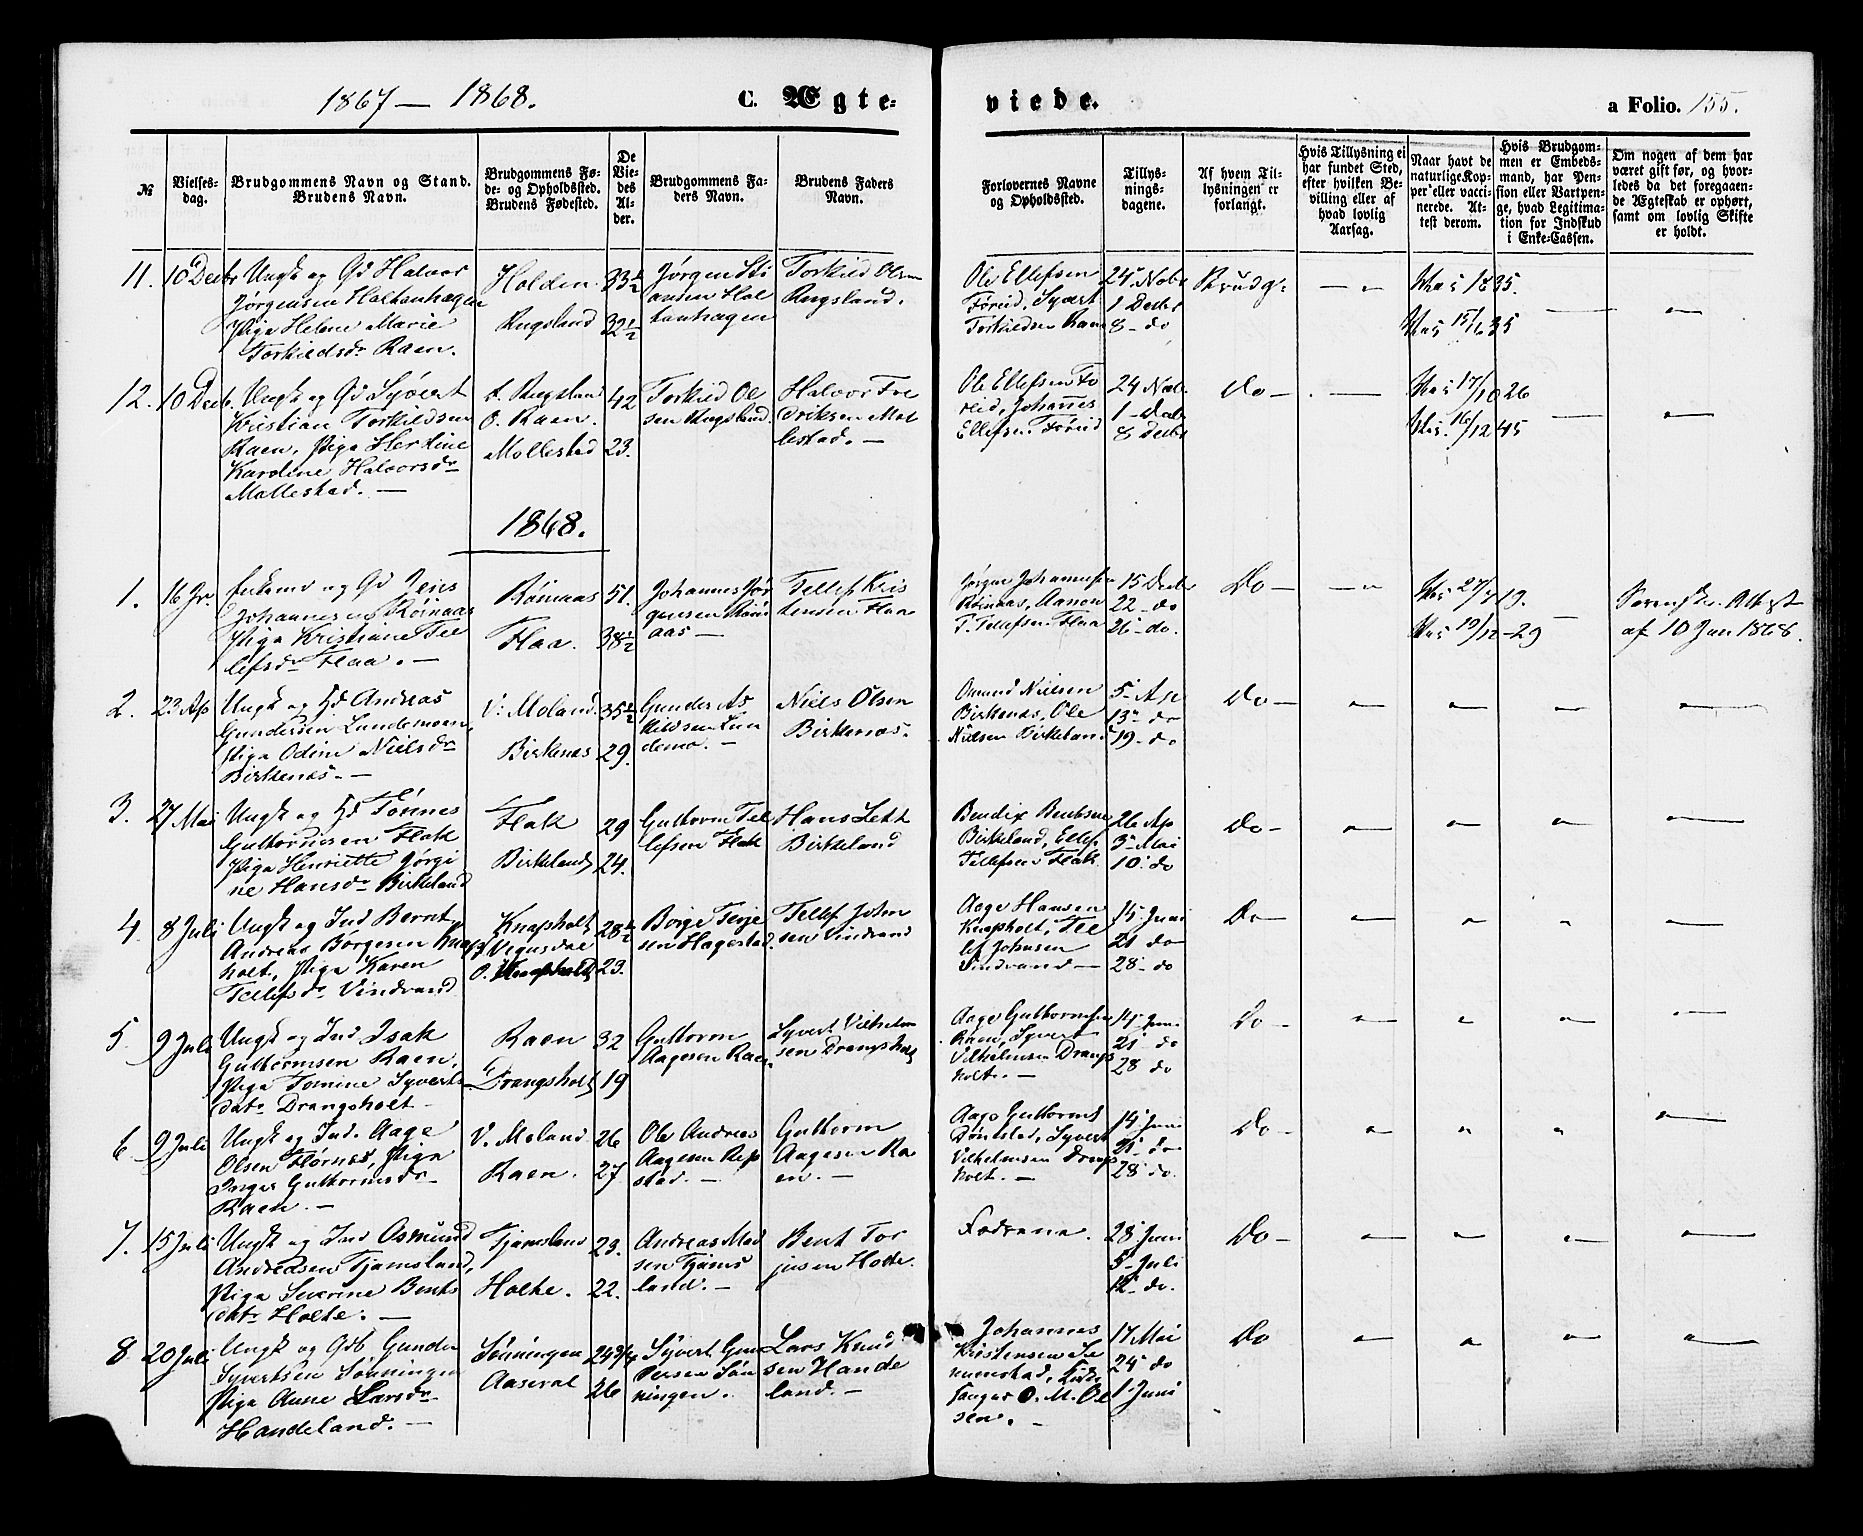 1867 — 1868.
C. Ægte-
viede.
a Folio. 155.
№
Vielses-
dag.
Brudgommens Navn og Stand.
Brudens Navn.
Brudgommens Fø-
de- og Opholdssted.
Brudens Fødested.
De
Vie-
des
Al-
der.
Brudgommens Fa-
ders Navn.
Brudens Faders
Navn.
Forlovernes Navne
og Opholdssted.
Tillys-
nings-
dagene.
Af hvem Til-
lysningen er
forlangt.
Hvis Tillysning ei
har fundet Sted,
efter hvilken Be-
villing eller af
hvad lovlig
Aarsag.
Naar havt de
naturlige Kop-
per eller vacci-
nerede. At-
test derom.
Hvis Brudgom-
men er Embeds-
mand, har Pen-
sion eller Vartpen-
ge, hvad Legitima-
tion for Indskud
i Enke-Cassen.
Om nogen af dem har
været gift før, og hvor-
ledes da det foregaaen-
de Ægteskab er ophørt,
samt om lovlig Skifte
er holdt.
11. 10 Decbr
Ungk og Gd Halvor
Jørgensen Holtenhagen
Pige Helene Marie
Torkildsdr Raen.
Holden
Rugsland
33½
32½
Jørgen Sti
ansen Hol
tenhagen
Torkild Olsen
Rugsland.
Ole Ellefsen
Førrid, Syvert
Torkildsen Raen
24 Novb
1 Decbr
8 - do
Brudg:
— „
1835.
15/6 35
—
—
12. 10 Decb.
Ungk og Gd Syvert
Kristian Torkildsen
Raen, Pige Hertine
Karoline Halvorsdr
Mollestad. —
f. Rugsland
O. Raen.
Mollestad
42
23.
Torkild Ol
sen Rugsland.
Halvor Fre
driksen Mol
lestad. —
Ole Ellefsen Fø
reid, Johannes
Ellefsen Førrid
24 Novb
1 - Decb
8 Decbr
Do —
—
17/10 26
16/12 45
—
—
1868.
1. 16 Jr.
Enkemd og Gd Jens
Johannesen Røinaas
Pige Kristiane Tel
lefsdr Flaa. —
Røinaas
Flaa.
51.
38½
Johannes Jør
gensen Røin
aas —
Tellef Kris
tensen Flaa
Jørgen Johannesen
Røinaas, Aanon
T. Tellefsen Flaa
15 Decbr
22 - do
26 - do.
Do —
— „
27/7 19.
19/12 - 29
—
Sorenskr. Attest
af 10 Jan 1868.
2. 23 Ap
Ungk og Gd Andreas
Gundersen Lundemoen,
Pige Odine Nielsdr
Birkenæs. —
V: Moland
Birkenæs
35½
29.
Gunder As
kildsen Lun
demo. —
Niels Olsen
Birkenæs.
Omund Nielsen
Birkenæs, Ole
Nielsen Birkeland
5 Ap
13 do
19 - do
Do —
—
—
—
—
3. 27 Mai
Ungk og Gd Tønnes
Guttormsen Flak
Pige Henriette Jørgi
ne Hansdr Birkeland
Flak
Birkeland
29
24.
Guttorm Tel
lefsen Flak
Hans Lett
Birkeland
Bendix Bentsen
Birkeland, Ellef
Tellefsen Flak.
26 Ap
3 - Mai
10 - do
Do —
—
—
—
—
4. 8 Juli
Ungk og Ind Bernt
Andreas Børgesen Knap
holt, Pige Karen
Tellefsdr Vindrand
Knapholt
f Vegusdal
O. Knapholt
28½
23.
Børge Terje
sen Hagestad.
Tellef John
sen Vindrand
Aage Hansen
Knapholt, Tel
lef Johnsen
Vindrand —
15 Juni
21 do
28 - do
Do —
—
„
„
—
5. 9 Juli
Ungk og Ind Isak
Guttormsen Raen,
Pige Tomine Syverts
datr Drangsholt —
Raen
Drangsholt
32
19
Guttorm
Aagesen Raen
Syvert Vilhelm
sen Drangsholt
Aage Guttormsen
Raen, Syvert
Vilhelmsen Drangs
holt. —
14 - Juni
21 do
28 do
Do —
—
„
—
—
6. 9 Juli
Ungk og Ind. Aage
Olsen Flørnes, Pige
Inger Guttormsdr
Raen. —
V. Moland
Raen.
26
27
Ole Andreas
Aagesen Rep
stad. —
Guttorm
Aagesen Ra
en. —
Aage Guttorms
Dønnestad, Syvert
Vilhelmsen Drangs
holt. —
14 - Juni
21 - do
28 do.
Do —
—
„
„
—
7. 15 Juli
Ungk og Ind Osmund
Andreasen Tjamsland,
Pige Severine Bents
datr Holte. —
Tjamsland
Holte.
23.
22.
Andreas Mad
sen Tjams
land. —
Bent Tor
jusen Holte.
Fædrene.
28 Juni
5 - Juli
12 do.
Do —
—
—
—
—
8. 20 Juli
Ungk og Gdb Gunder
Syvertsen Sønningen
Pige Anne Larsdr
Handeland. —
Sønningen
Aaseral
24¾
26
Syvert Gun
dersen Søn
ningen.
Lars Knud
sen Hande
land. —
Johannes
Kristensen
Kirke
sanger O. M. Ol
sen. —
17 Mai
24 do
1 Juni
Do
—
„
—
—